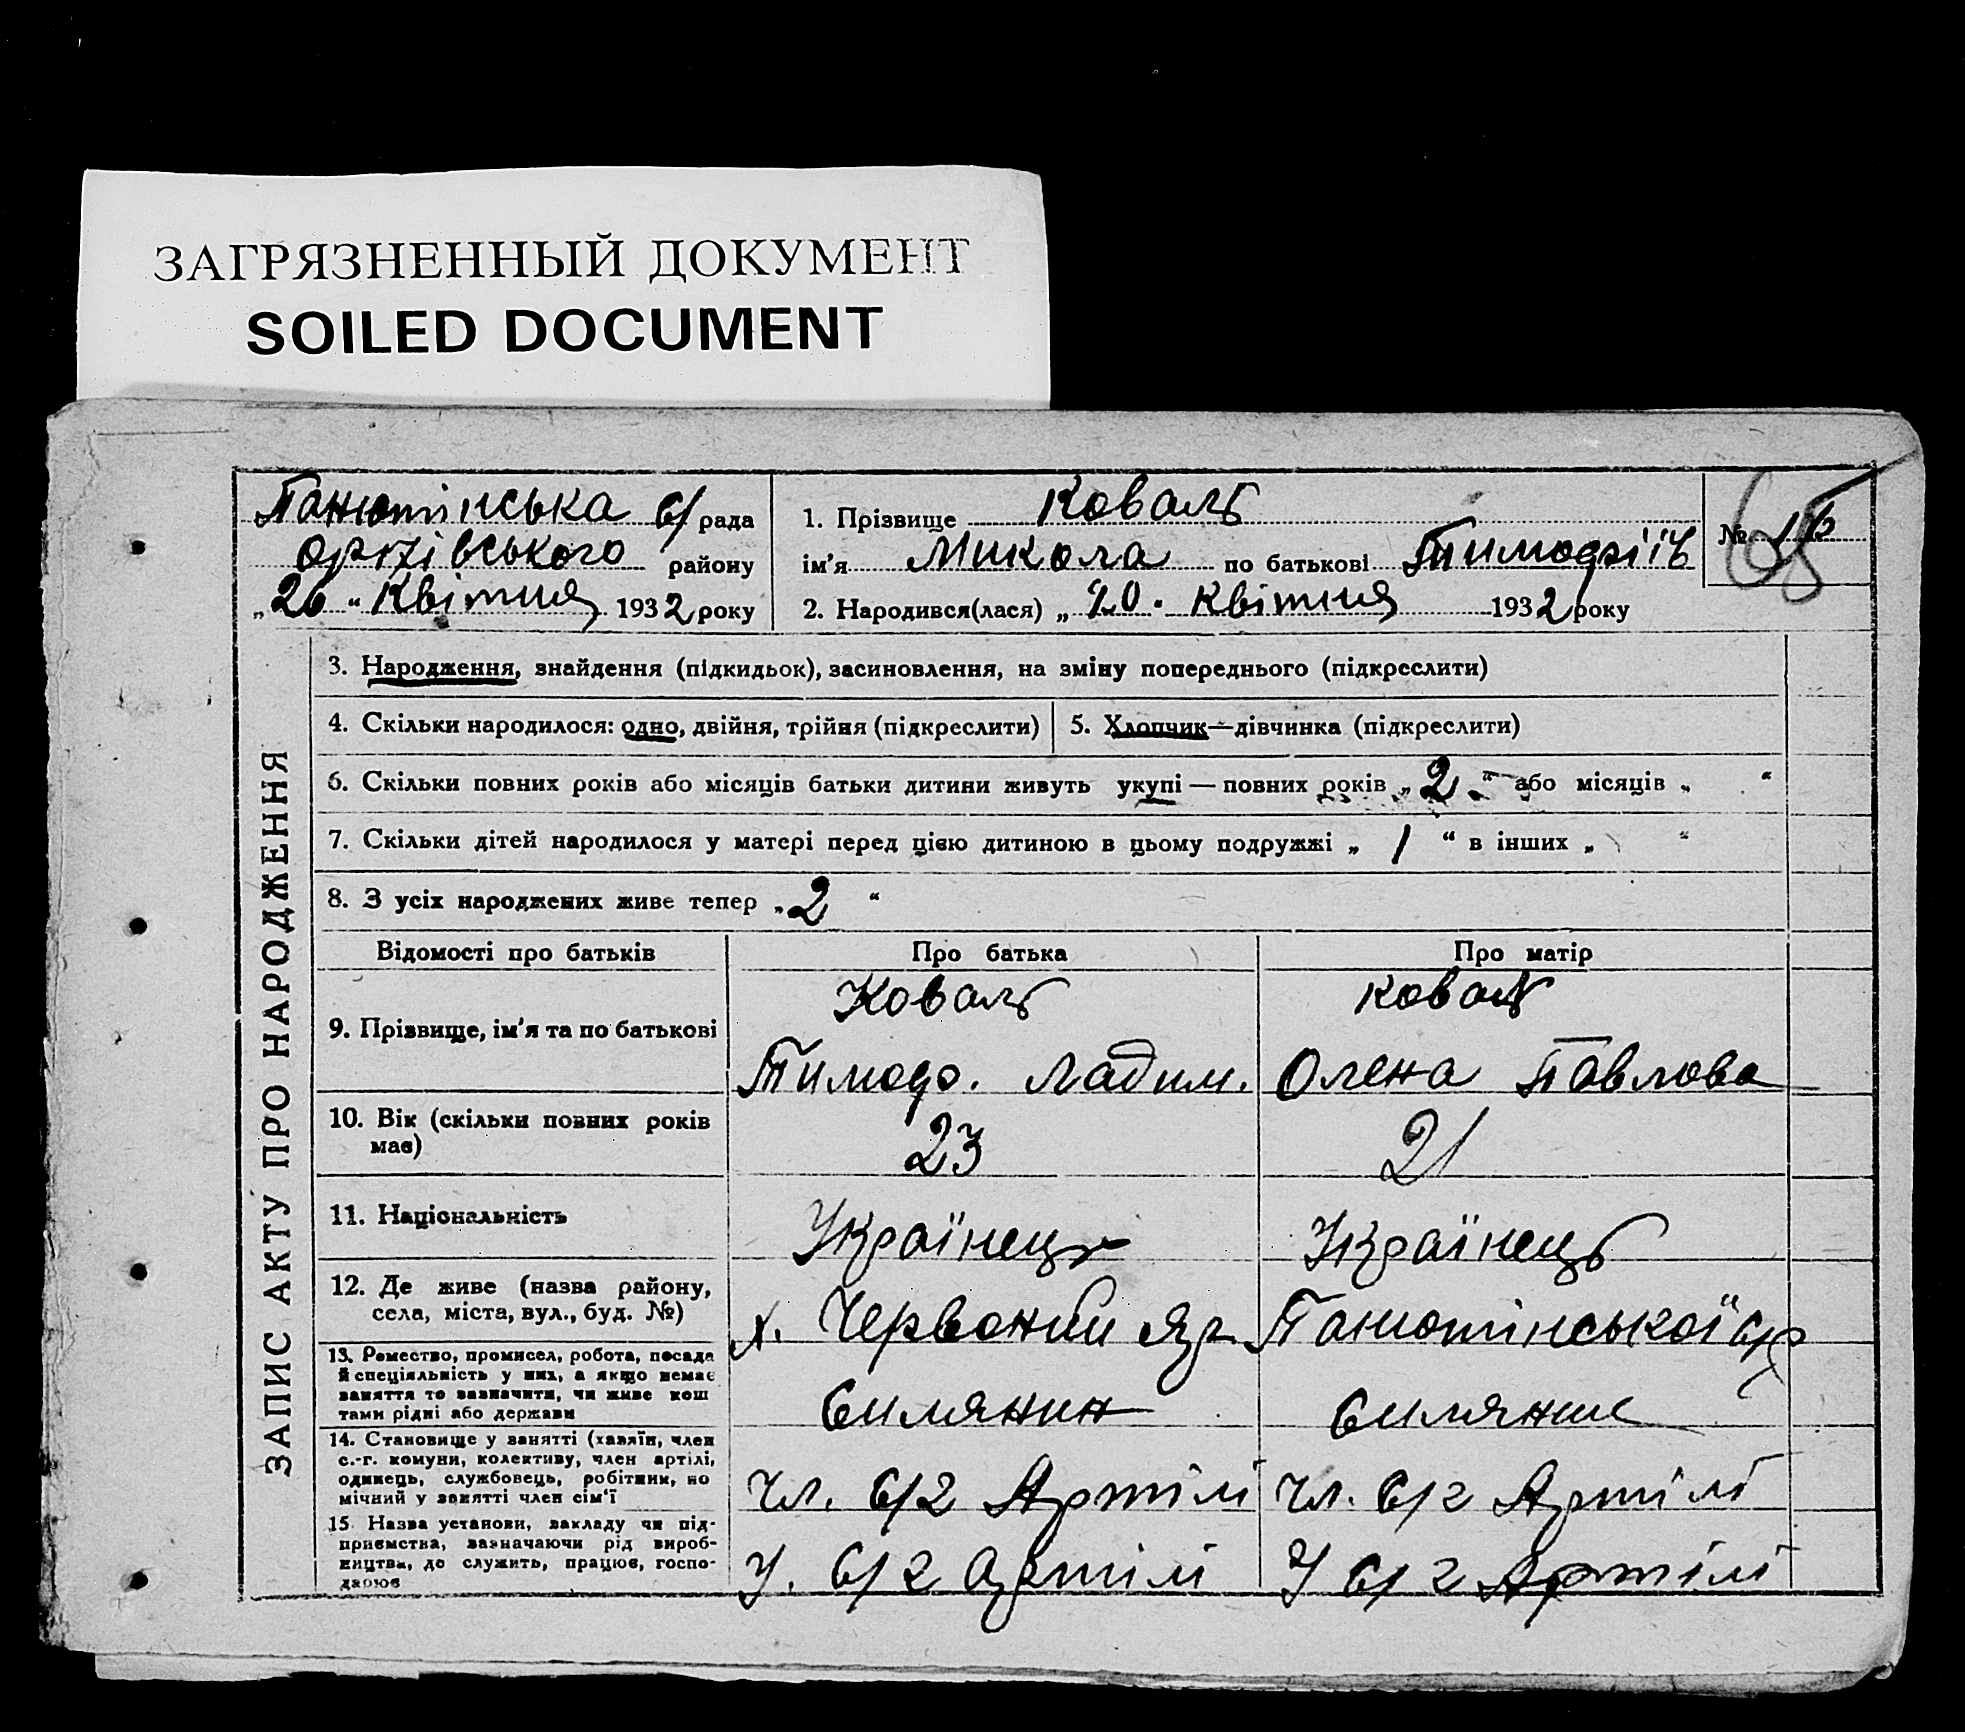 ЗАГРЯЗНЕННЫЙ ДОКУМЕНТ
SOILED DOCUMENT
Панютинська с/рада
району
„26“ Квітня 1932 року
1. Прізвище Коваль
ім’я Микола по батькові Тимофіїч
2. Народився(лася) „20“ Квітня 1932 року
№ 16
68
ЗАПИС АКТУ ПРО НАРОДЖЕННЯ
3. Народження, знайдення (підкидьок), засиновлення, на зміну попереднього (підкреслити)
4. Скільки народилося: одно, двійня, трійня (підкреслити)
5. Хлопчик—дівчинка (підкреслити)
6. Скільки повних років або місяців батьки дитини живуть укупі — повних років „2“ або місяців „ “
7. Скільки дітей народилося у матері перед цією дитиною в цьому подружжі „1“ в інших „ “
8. З усіх народжених живе тепер „2“
Відомості про батьків
Про батька
Про матір
9. Прізвище, ім’я та по батькові
Коваль
Тимоф. Ладим.
Коваль
Олена Павлова
10. Вік (скільки повних років
має)
23
21
11. Національність
Українець
Українець
12. Де живе (назва району,
села, міста, вул., буд. №)
х. Червоний Яр
Панютинської с/р
13. Ремество, промисел, робота, посада
й спеціяльність у них, а якщо немає
заняття то зазначити, чи живе кош
тами рідні або держави
Силянин
Силянин
14. Становище у занятті (хазяїн, член
с.-г. комуни, колективу, член артілі,
одинець, службовець, робітник, по
мічний у занятті член сім’ї
Чл. с/г Артілі
Чл. с/г Артілі
15 Назва установи, закладу чи під-
приємства, зазначаючи рід вироб-
ництва, де служить, працює, госпо-
дарює
У. с/г артілі
У с/г Артілі